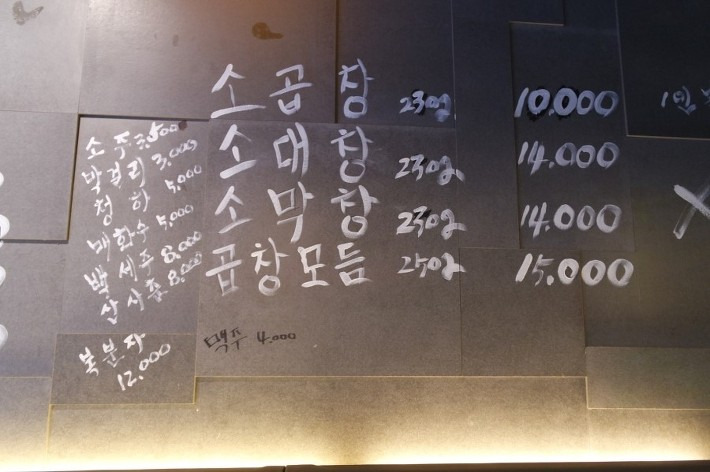 소곱창 230g 10.000
소대창 230g 14.000
소막창 230g 14.000
곱창모듬 250g 15.000
소주
막걸리 3.000
청하 5.000
매화수 5.000
백세주 8.000
산사춘 8.000
복분자
12.000
맥주 4.000